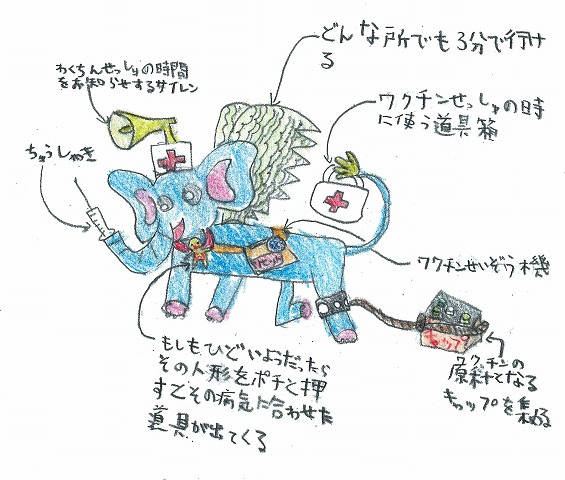 どんな所でも3分で行け
る
わくちんせっしゅの時間
をお知らせするサイレン
ワクチンせっしゅの時
に使う道具箱
ちゅうしゃき
ワクチンせいぞう機
もしもひどいようだったら
その人形をポチと押
すとその病気に合わせた
道具が出てくる
キャップ
ワクチンの
原料となる
キャップを集める